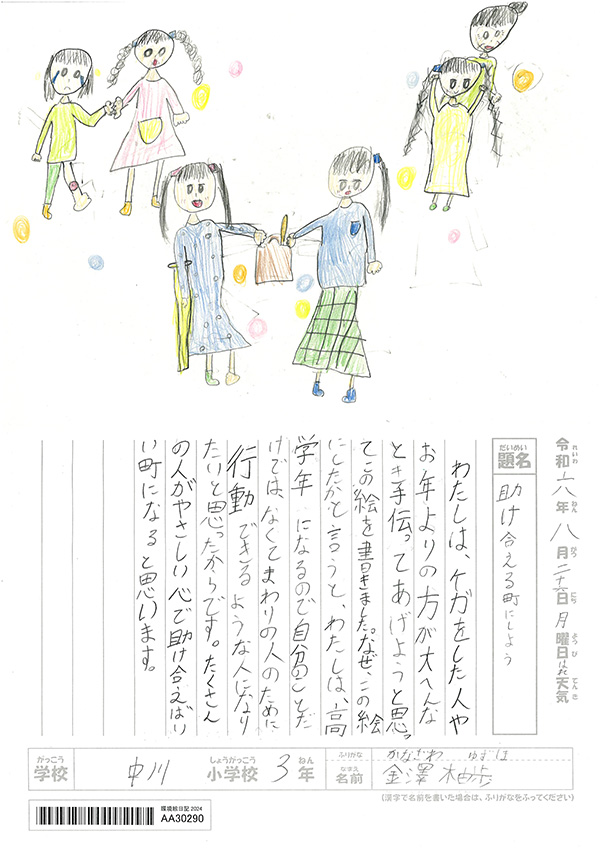 令和六年八月二十六日月曜日はれ天気
れいわ ねん がつ にち ようび てんき
だいめい
題名
助け合える町にしよう
わたしは、ケガをした人や
お年よりの方が大へんな
とき手伝ってあげようと思っ
てこの絵を書きました。なぜ、この絵
にしたかと言うと、わたしは、高
学年になるので自分のことだ
けでは、なくてまわりの人のために
行動できるような人になり
たいと思ったからです。たくさん
の人がやさしい心で助け合えばい
い町になると思います。
がっこう しょうがっこう ねん ふりがな かなざわ ゆずほ
学校 中川 小学校 3年 なまえ 名前 金澤 柚歩
(漢字で名前を書いた場合は、ふりがなをふってください)
環境絵日記 2024
AA30290